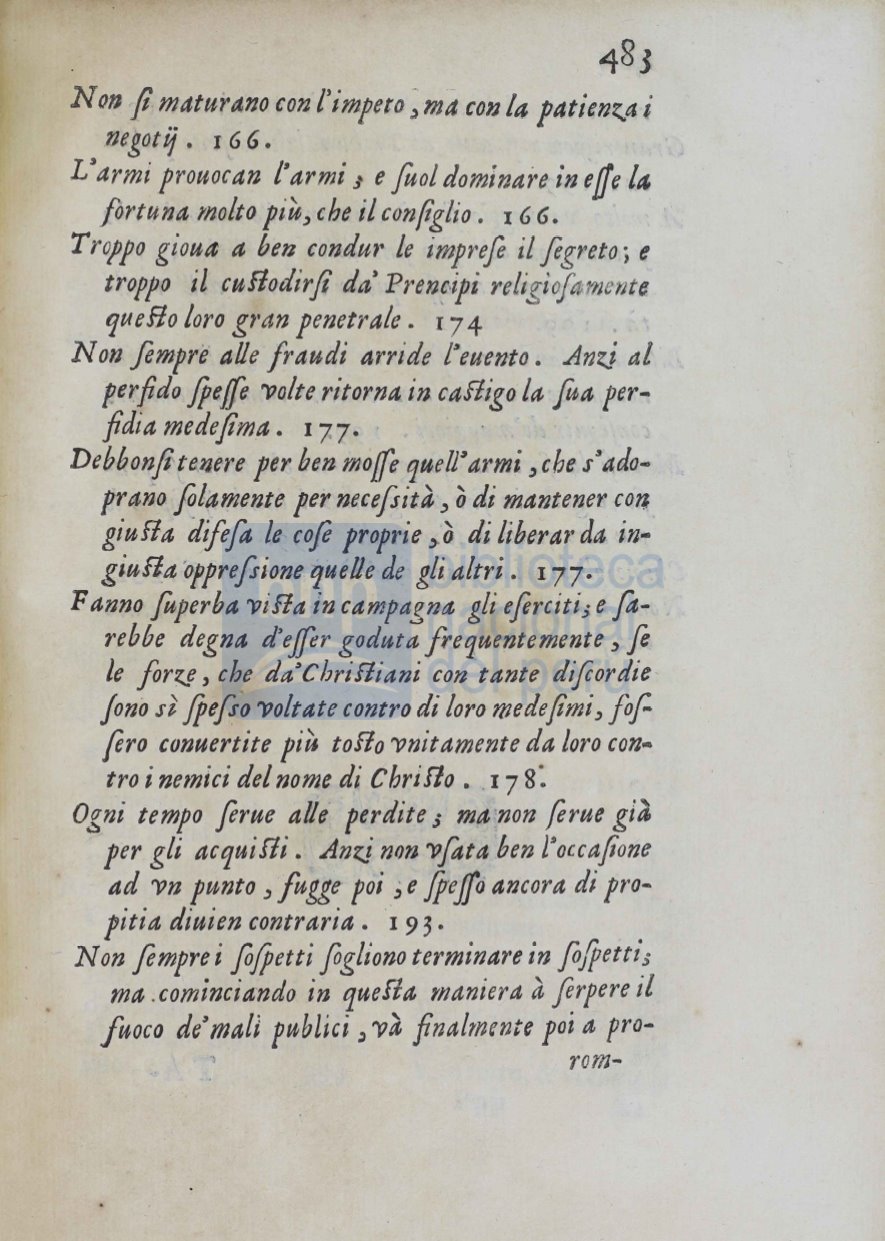 483
Non ſi maturano con l'impeto, ma con la patienza i
negotij. 166.
L'armi prouocan l'armi; e ſuol dominare in eſſe la
fortuna molto più, che il conſiglio. 166.
Troppo gioua a ben condur le impreſe il ſegreto; e
troppo il cuſtodirſi da' Prencipi religioſamente
queſto loro gran penetrale. 174
Non ſempre alle fraudi arride l'euento. Anzi al
perfido ſpeſſe volte ritorna in caſtigo la ſua per-
fidia medeſima. 177.
Debbonſi tenere per ben moſſe quell'armi, che s'ado-
prano ſolamente per neceſsità, ò di mantener con
giuſta difeſa le coſe proprie, ò di liberar da in-
giuſta oppreſsione quelle de gli altri. 177.
Fanno ſuperba viſta in campagna gli eſerciti; e ſa-
rebbe degna d'eſſer goduta frequentemente, ſe
le forze, che da' Chriſtiani con tante diſcordie
ſono sì ſpeſso voltate contro di loro medeſimi, foſ-
ſero conuertite più toſto vnitamente da loro con-
tro i nemici del nome di Chriſto. 178.
Ogni tempo ſerue alle perdite; ma non ſerue già
per gli acquiſti. Anzi non vſata ben l'occaſione
ad vn punto, fugge poi, e ſpeſſo ancora di pro-
pitia diuien contraria. 193.
Non ſempre i ſoſpetti ſogliono terminare in ſoſpetti;
ma cominciando in queſta maniera à ſerpere il
fuoco de' mali publici, và finalmente poi a pro-
rom-
biblioteca